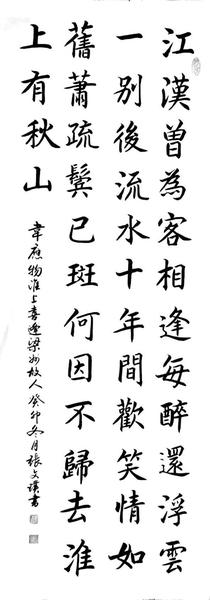 江漢曾為客相逢每醉還浮雲
一別後流水十年間歡笑情如
舊蕭疏鬢已斑何因不歸去淮
上有秋山
韋應物淮上喜逢梁州故人癸卯冬月張文